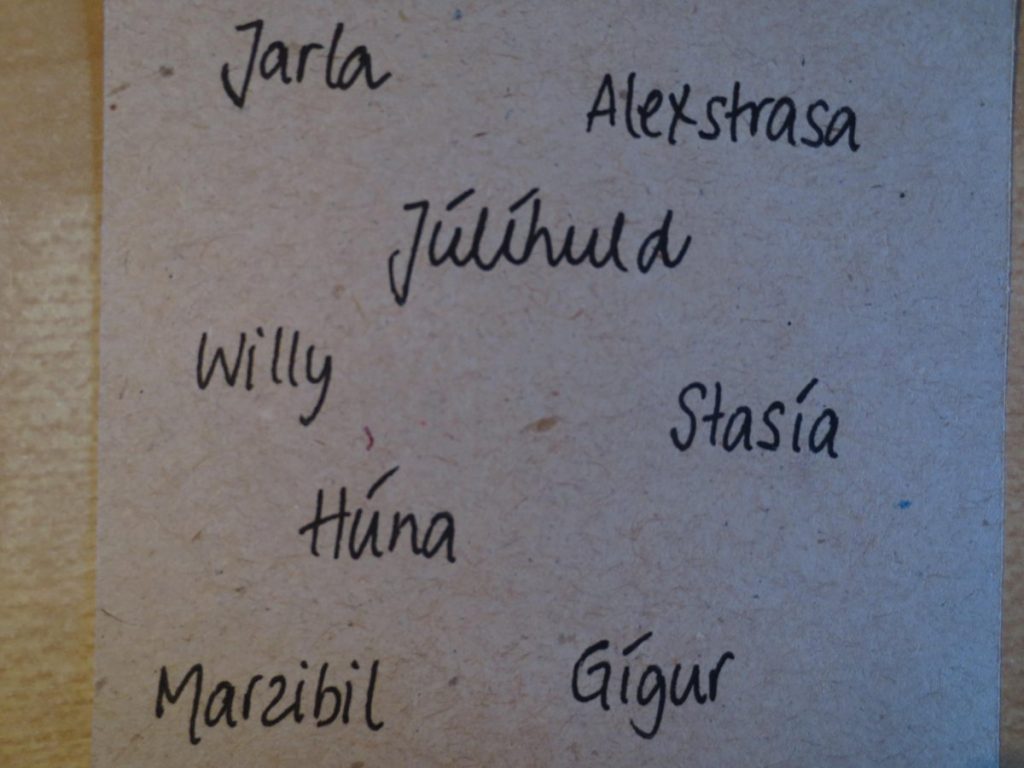 Jarla
Alexstrasa
Júlíhuld
Willy
Stasía
Húna
Marzibil
Gígur